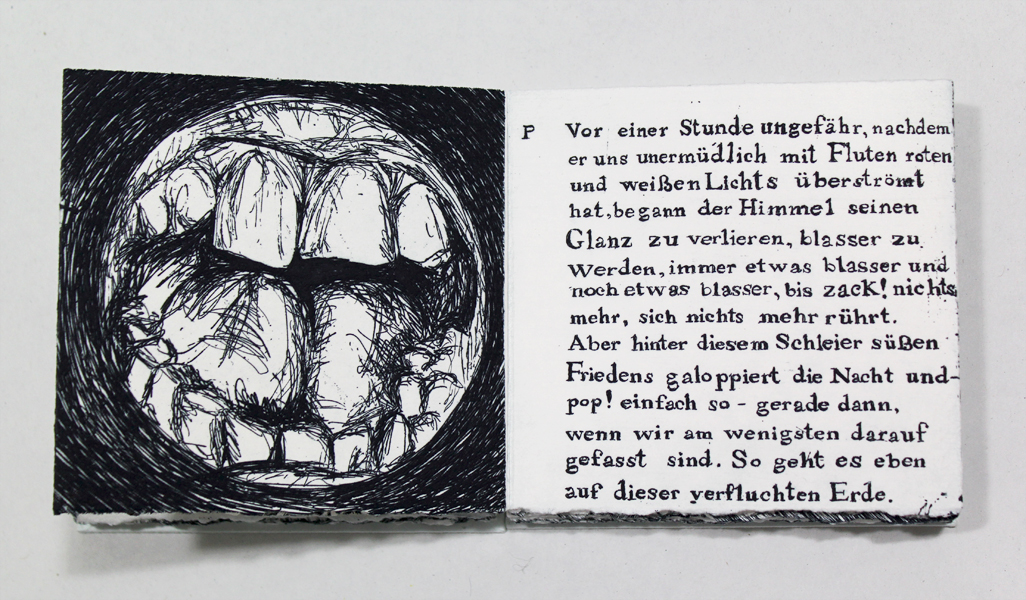 P Vor einer Stunde ungefähr, nachdem
er uns unermüdlich mit Fluten roten
und weißen Lichts überströmt
hat, begann der Himmel seinen
Glanz zu verlieren, blasser zu
werden, immer etwas blasser und
noch etwas blasser, bis zack! nichts
mehr, sich nichts mehr rührt.
Aber hinter diesem Schleier süßen
Friedens galoppiert die Nacht und-
pop! einfach so - gerade dann,
wenn wir am wenigsten darauf
gefasst sind. So geht es eben
auf dieser verfluchten Erde.